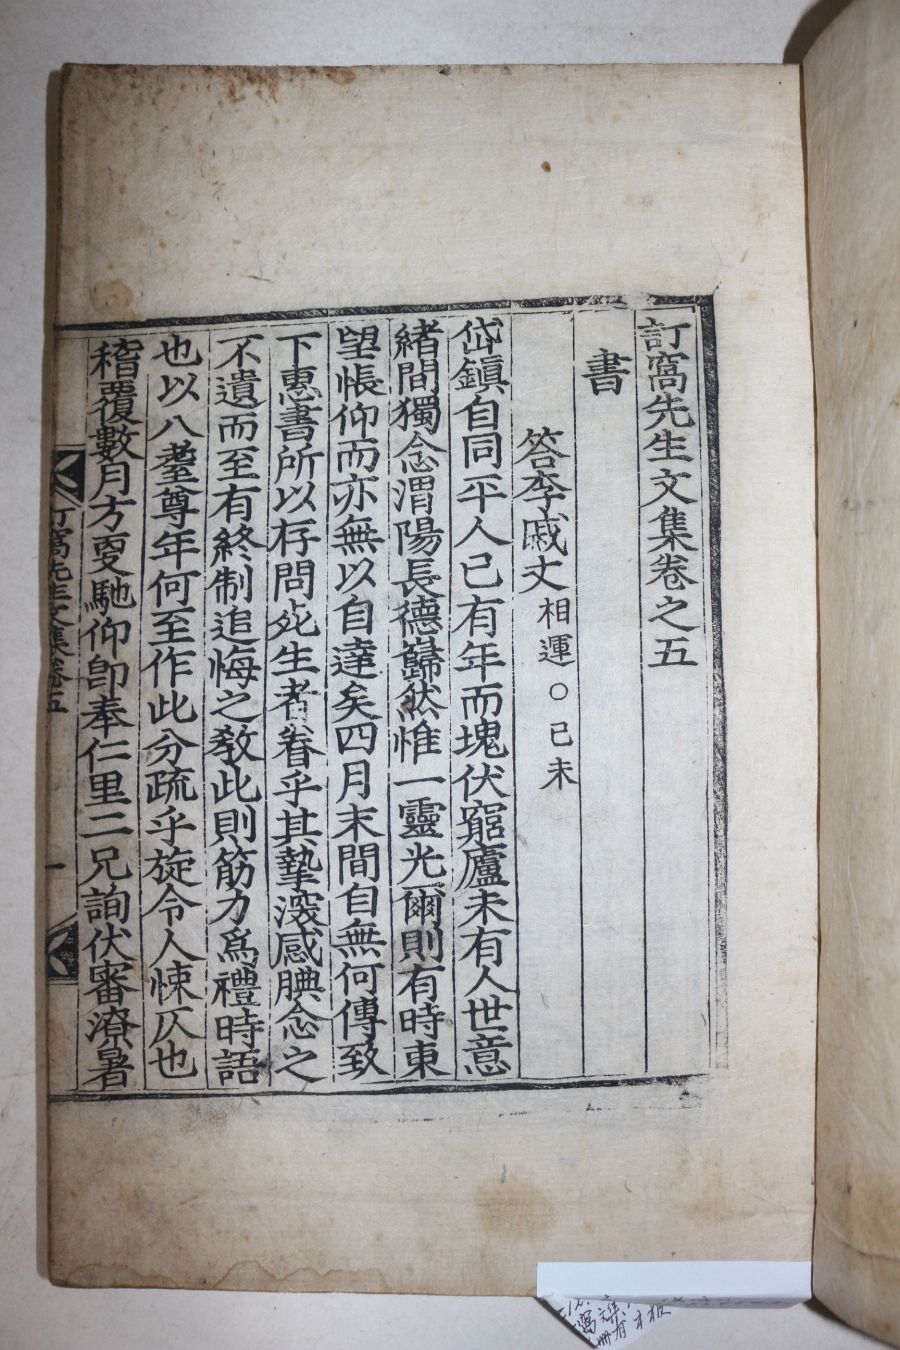 訂窩先生文集卷之五
書
答李戚丈 相運○己未
岱鎭自同平人已有年而塊伏窮廬未有人世意
緖間獨念渭陽長德巋然惟一靈光爾則有時東
望悵仰而亦無以自達矣四月末間自無何傳致
下惠書所以存問死生者眷乎其摯深感腆念之
不遺而至有終制追悔之敎此則筋力爲禮時語
也以八耋尊年何至作此分疏乎旋令人悚仄也
稽覆數月方更馳仰卽奉仁里二兄詢伏審潦暑
訂窩先生文集卷五
一